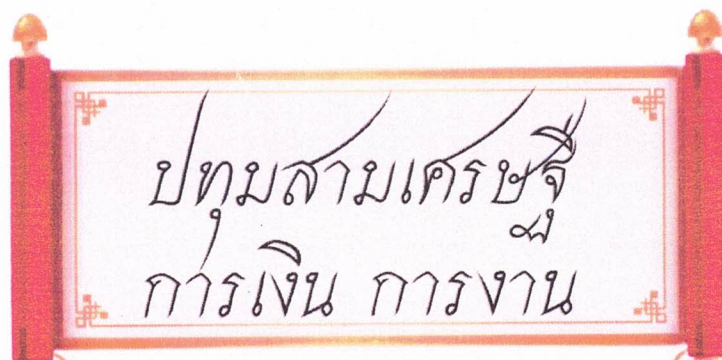 ปทุมสามเศรษฐี
การเงิน การงาน